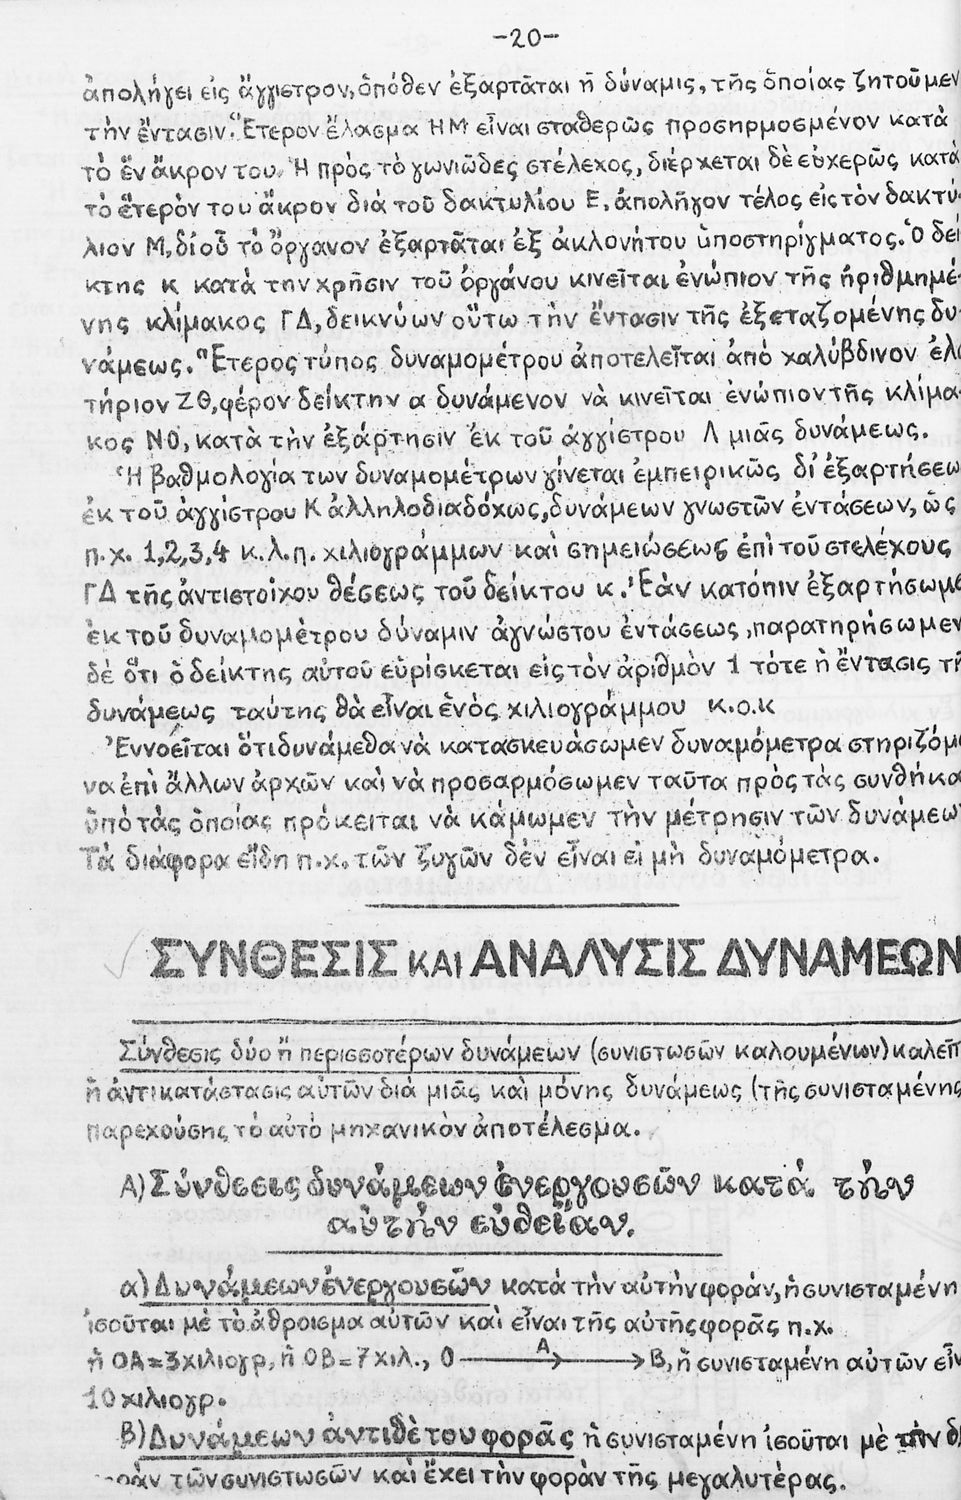 -20-
ἀπολήγει εἰς ἄγγιστρον, ὁπόθεν ἐξαρτᾶται ἡ δύναμις, τῆς ὁποίας ζητοῦμεν
τὴν ἔντασιν. Ἕτερον ἔλασμα ΗΜ εἶναι σταθερῶς προσηρμοσμένον κατὰ
τὸ ἓν ἄκρον του. Ἡ πρὸς τὸ γωνιῶδες στέλεχος, διέρχεται δὲ εὐχερῶς κατὰ
τὸ ἕτερὸν του ἄκρον διὰ τοῦ δακτυλίου Ε, ἀπολῆγον τέλος εἰς τὸν δακτύ-
λιον Μ, δι' οὗ τὸ ὄργανον ἐξαρτᾶται ἐξ ἀκλονήτου ὑποστηρίγματος. Ὁ δεί
κτης κ κατὰ την χρῆσιν τοῦ ὀργάνου κινεῖται ἐνώπιον τῆς ἠριθμημέ-
νης κλίμακος ΓΔ, δεικνύων οὕτω τὴν ἔντασιν τῆς ἐξεταζομένης δυ-
νάμεως. Ἕτερος τύπος δυναμομέτρου ἀποτελεῖται ἀπὸ χαλύβδινον ἐλα
τήριον ΖΘ, φέρον δείκτην α δυνάμενον νὰ κινεῖται ἐνώπιον τῆς κλίμα-
κος ΝΟ, κατὰ τὴν ἐξάρτησιν ἐκ τοῦ ἀγγίστρου Λ μιᾶς δυνάμεως.
Ἡ βαθμολογία των δυναμομέτρων γίνεται ἐμπειρικῶς δι' ἐξαρτήσεω
ἐκ τοῦ ἀγγίστρου Κ ἀλληλοδιαδόχως, δυνάμεων γνωστῶν ἐντάσεων, ὡς
π.χ. 1,2,3,4 κ.λ.π. χιλιογράμμων καὶ σημειώσεως ἐπὶ τοῦ στελέχους
ΓΔ τῆς ἀντιστοίχου θέσεως τοῦ δείκτου κ. Ἐὰν κατόπιν ἐξαρτήσωμε
ἐκ τοῦ δυναμομέτρου δύναμιν ἀγνώστου ἐντάσεως, παρατηρήσωμεν
δὲ ὅτι ὁ δείκτης αὐτοῦ εὑρίσκεται εἰς τὸν ἀριθμὸν 1 τότε ἡ ἔντασις τῆ
δυνάμεως ταύτης θὰ εἶναι ἑνὸς χιλιογράμμου κ.ο.κ
Ἐννοεῖται ὅτι δυνάμεθα νὰ κατασκευάσωμεν δυναμόμετρα στηριζόμε
να ἐπὶ ἄλλων ἀρχῶν καὶ νὰ προσαρμόσωμεν ταῦτα πρὸς τὰς συνθήκα
ὑπὸ τὰς ὁποίας πρόκειται νὰ κάμωμεν τὴν μέτρησιν τῶν δυνάμεω
Τὰ διάφορα εἴδη π.χ. τῶν ζυγῶν δὲν εἶναι εἰ μὴ δυναμόμετρα.
ΣΥΝΘΕΣΙΣ ΚΑΙ ΑΝΑΛΥΣΙΣ ΔΥΝΑΜΕΩΝ
Σύνθεσις δύο ἢ περισσοτέρων δυνάμεων (συνιστωσῶν καλουμένων) καλεῖτ
ἡ ἀντικατάστασις αὐτῶν διὰ μιᾶς καὶ μόνης δυνάμεως (τῆς συνισταμένης
παρεχούσης τὸ αὐτὸ μηχανικὸν ἀποτέλεσμα.
Α) Σύνθεσις δυνάμεων ἐνεργουσῶν κατὰ τὴν
αὐτὴν εὐθεῖαν.
α) Δυνάμεων ἐνεργουσῶν κατὰ τὴν αὐτὴν φοράν, ἡ συνισταμένη
ἰσοῦται μὲ τὸ ἄθροισμα αὐτῶν καὶ εἶναι τῆς αὐτῆς φορᾶς π.χ.
ἡ ΟΑ=3 χιλιογρ, ἡ ΟΒ=7 χιλ., Ο Α Β, ἡ συνισταμένη αὐτῶν εἶν
10 χιλιογρ.
Β) Δυνάμεων ἀντιθέτου φορᾶς ἡ συνισταμένη ἰσοῦται μὲ τὴν δ
ρὰν τῶν συνιστωσῶν καὶ ἔχει τὴν φορὰν τῆς μεγαλυτέρας.